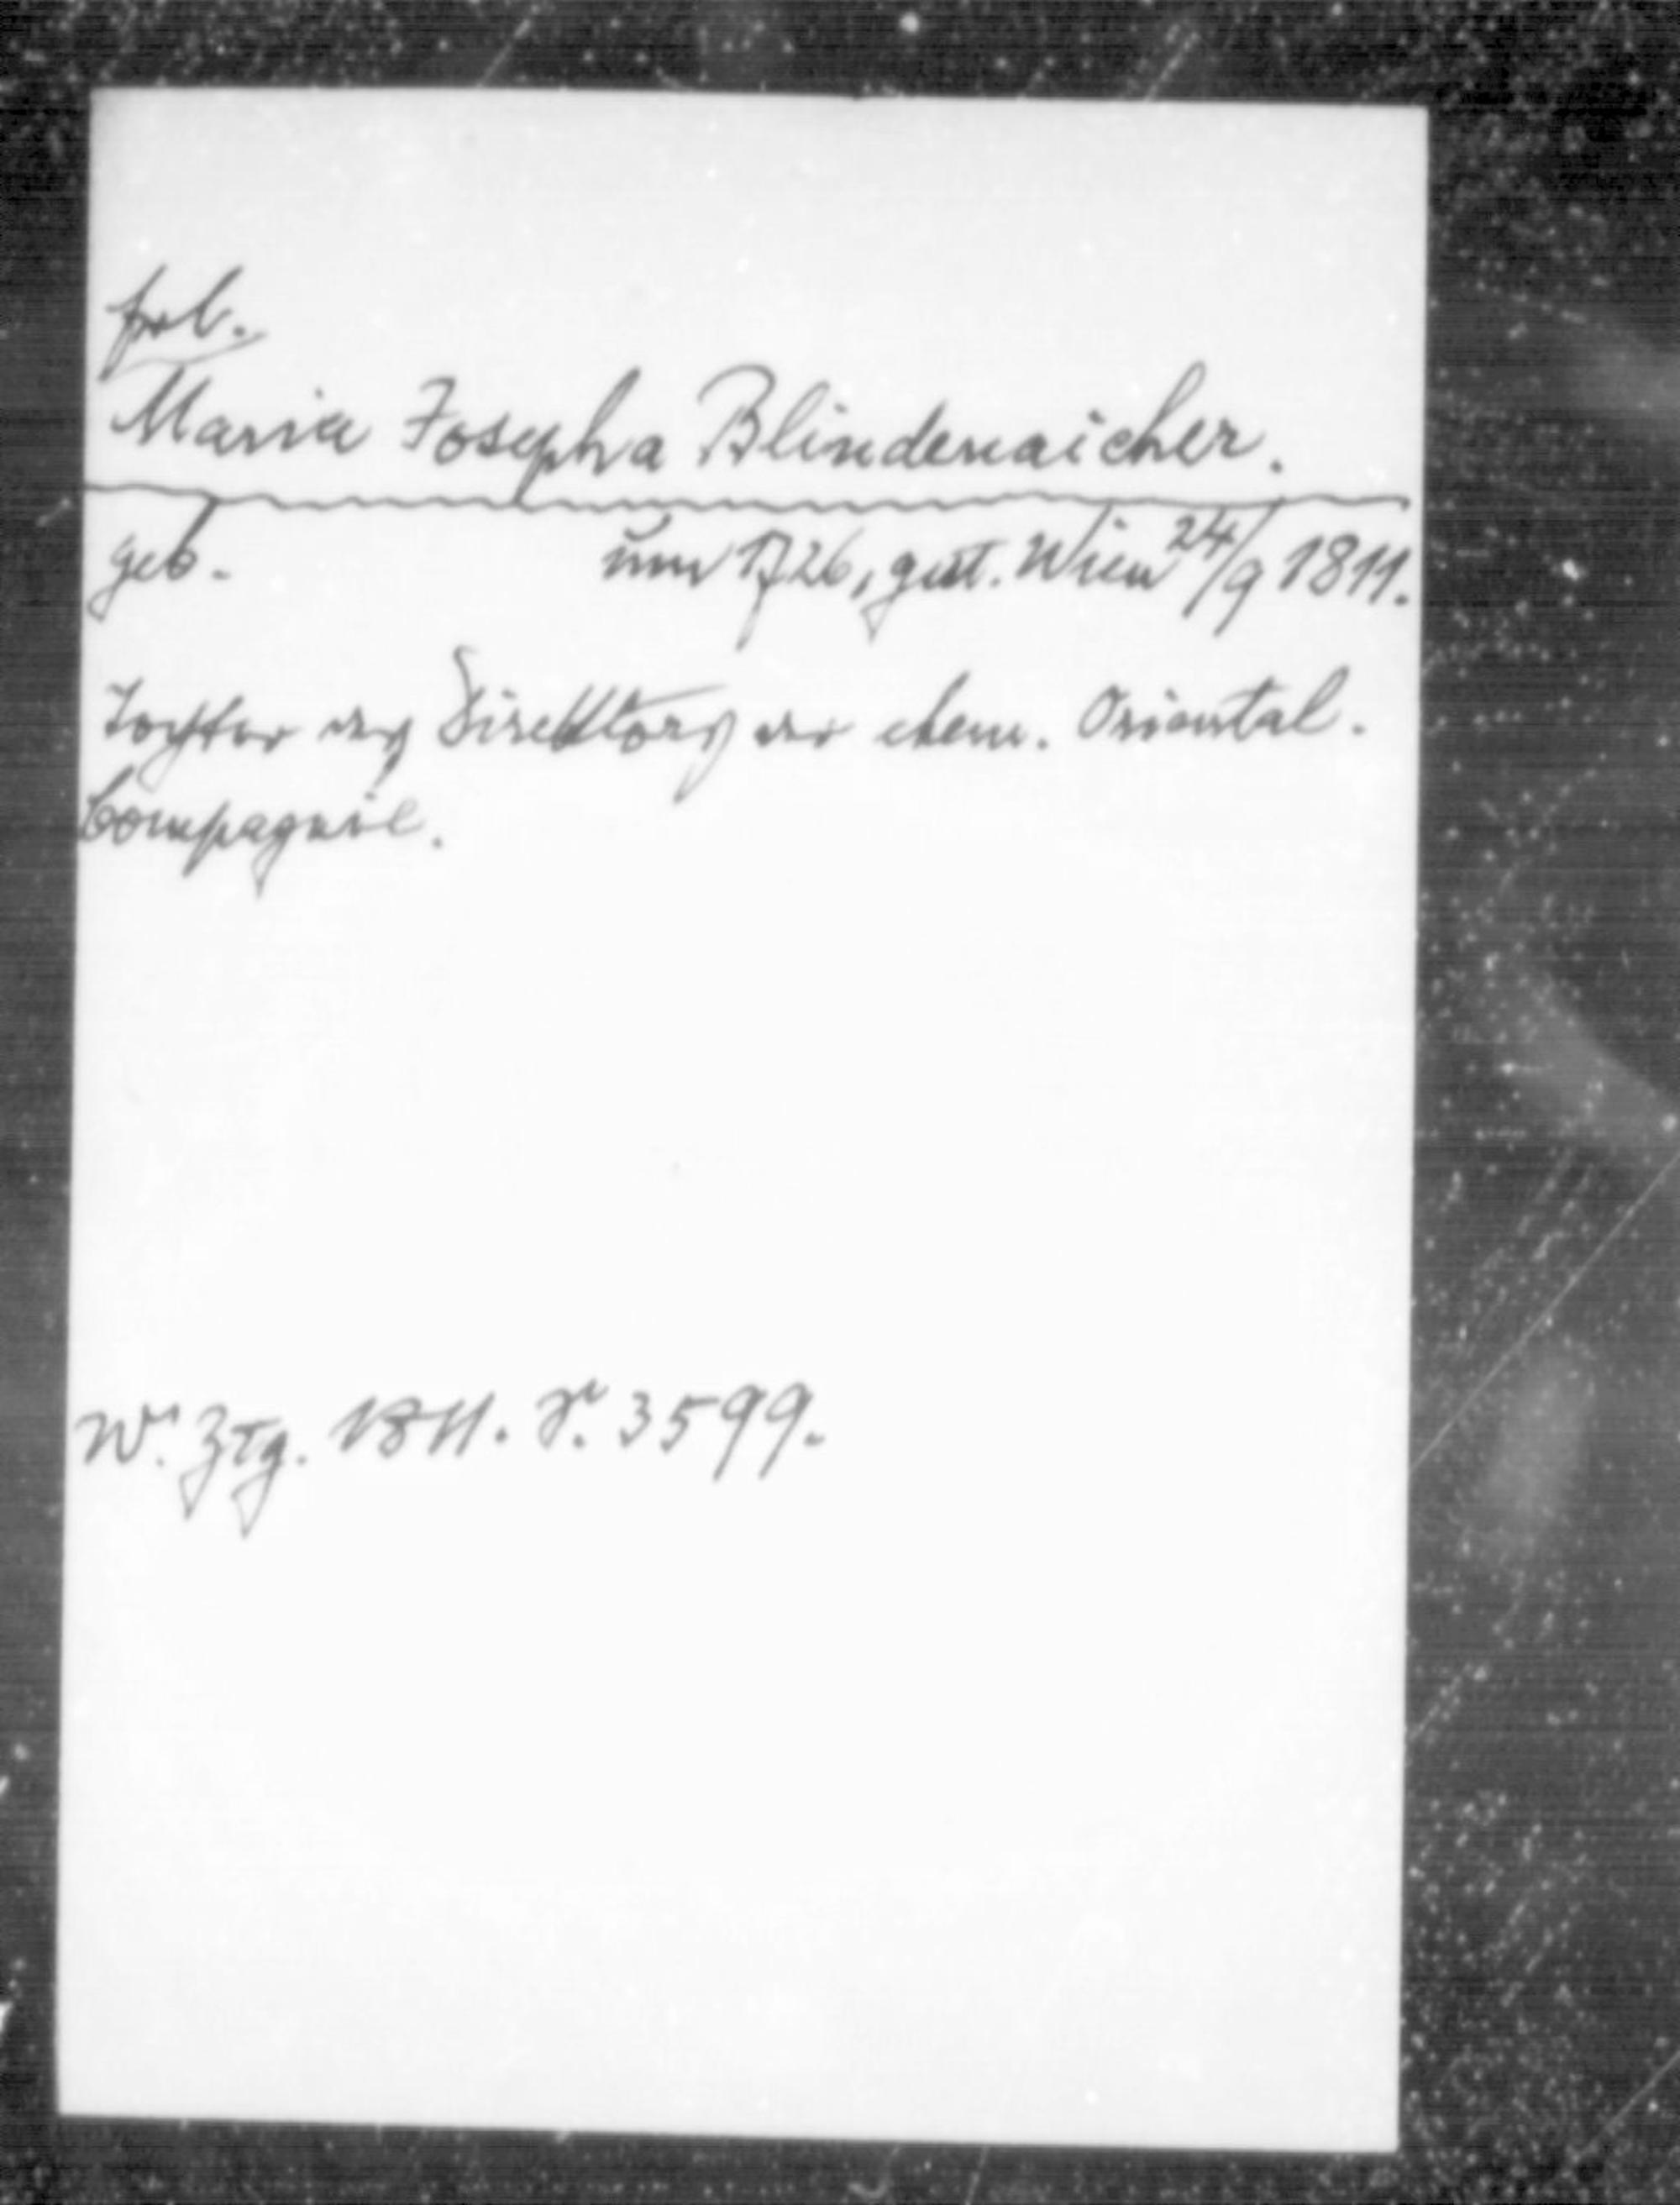 frl.
Maria Josepha Blindenaicher.
geb. um 1726, gest. Wien 24/9 1811.
Tochter des Direktors der ehem. Oriental.
Compagnie.
Wr. Ztg. 1811. S. 3599.